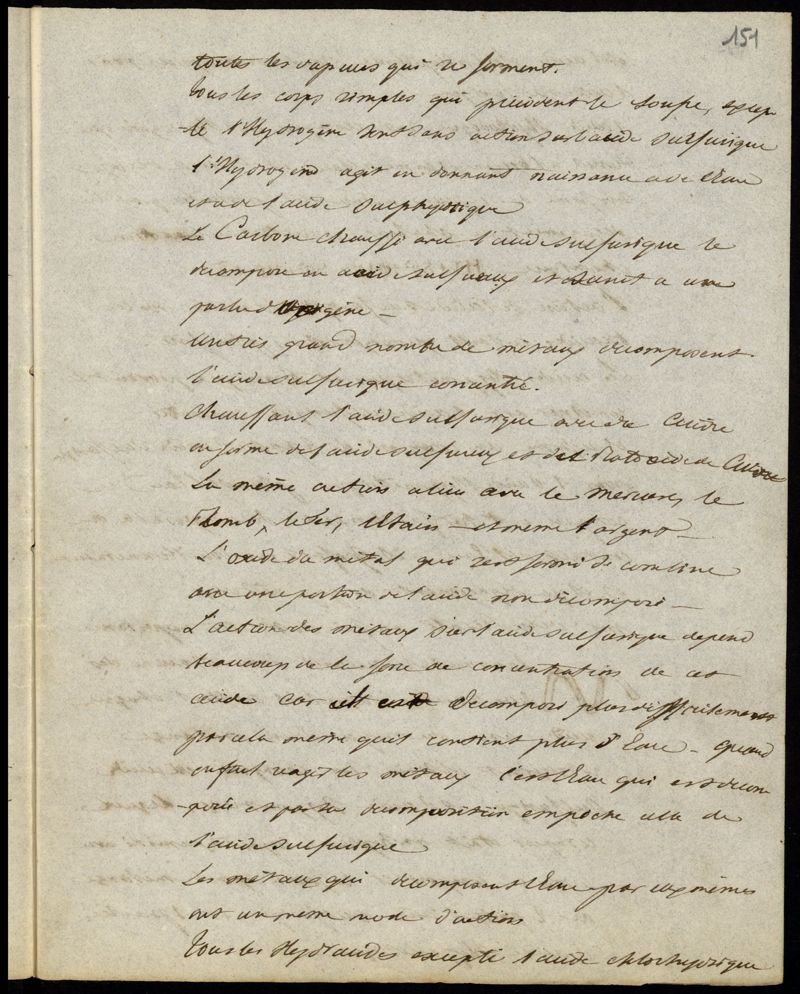 151
toutes les vapeurs qui se forment.
Tous les corps simples qui précèdent le soufre, excep
-té l'Hydrogène sont sans action sur l'acide sulfurique
l'Hydrogène agit en donnant naissance a de l'Eau
et a de l'acide sulphydrique
Le Carbone chauffé avec l'acide sulfurique le
décompose en acide sulfureux et s'unit a une
partie d'oxigène —
Un très grand nombre de métaux décomposent
l'acide sulfurique concentré.
Chauffant l'acide sulfurique avec du Cuivre
on forme de l'acide sulfureux et del Protoxide de Cuivre
La même action a lieu avec le mercure, le
Plomb, le fer, l'étain — et meme l'argent —
L'oxide du métal qui s'est formé se combine
avec une portion de l'acide non décomposé —
L'action des métaux sur l'acide sulfurique depend
beaucoup de la force de concentration de cet
acide car il est décomposé plus difficilement
par cela meme qu'il contient plus d'Eau — quand
on fait réagir les métaux c'est l'Eau qui est décom
-posée et par sa décomposition empêche celle de
l'acide sulfurique
Les métaux qui décomposent l'Eau par eux mêmes
ont un meme mode d'action
Tous les Hydracides excepté l'acide chlorhydrique